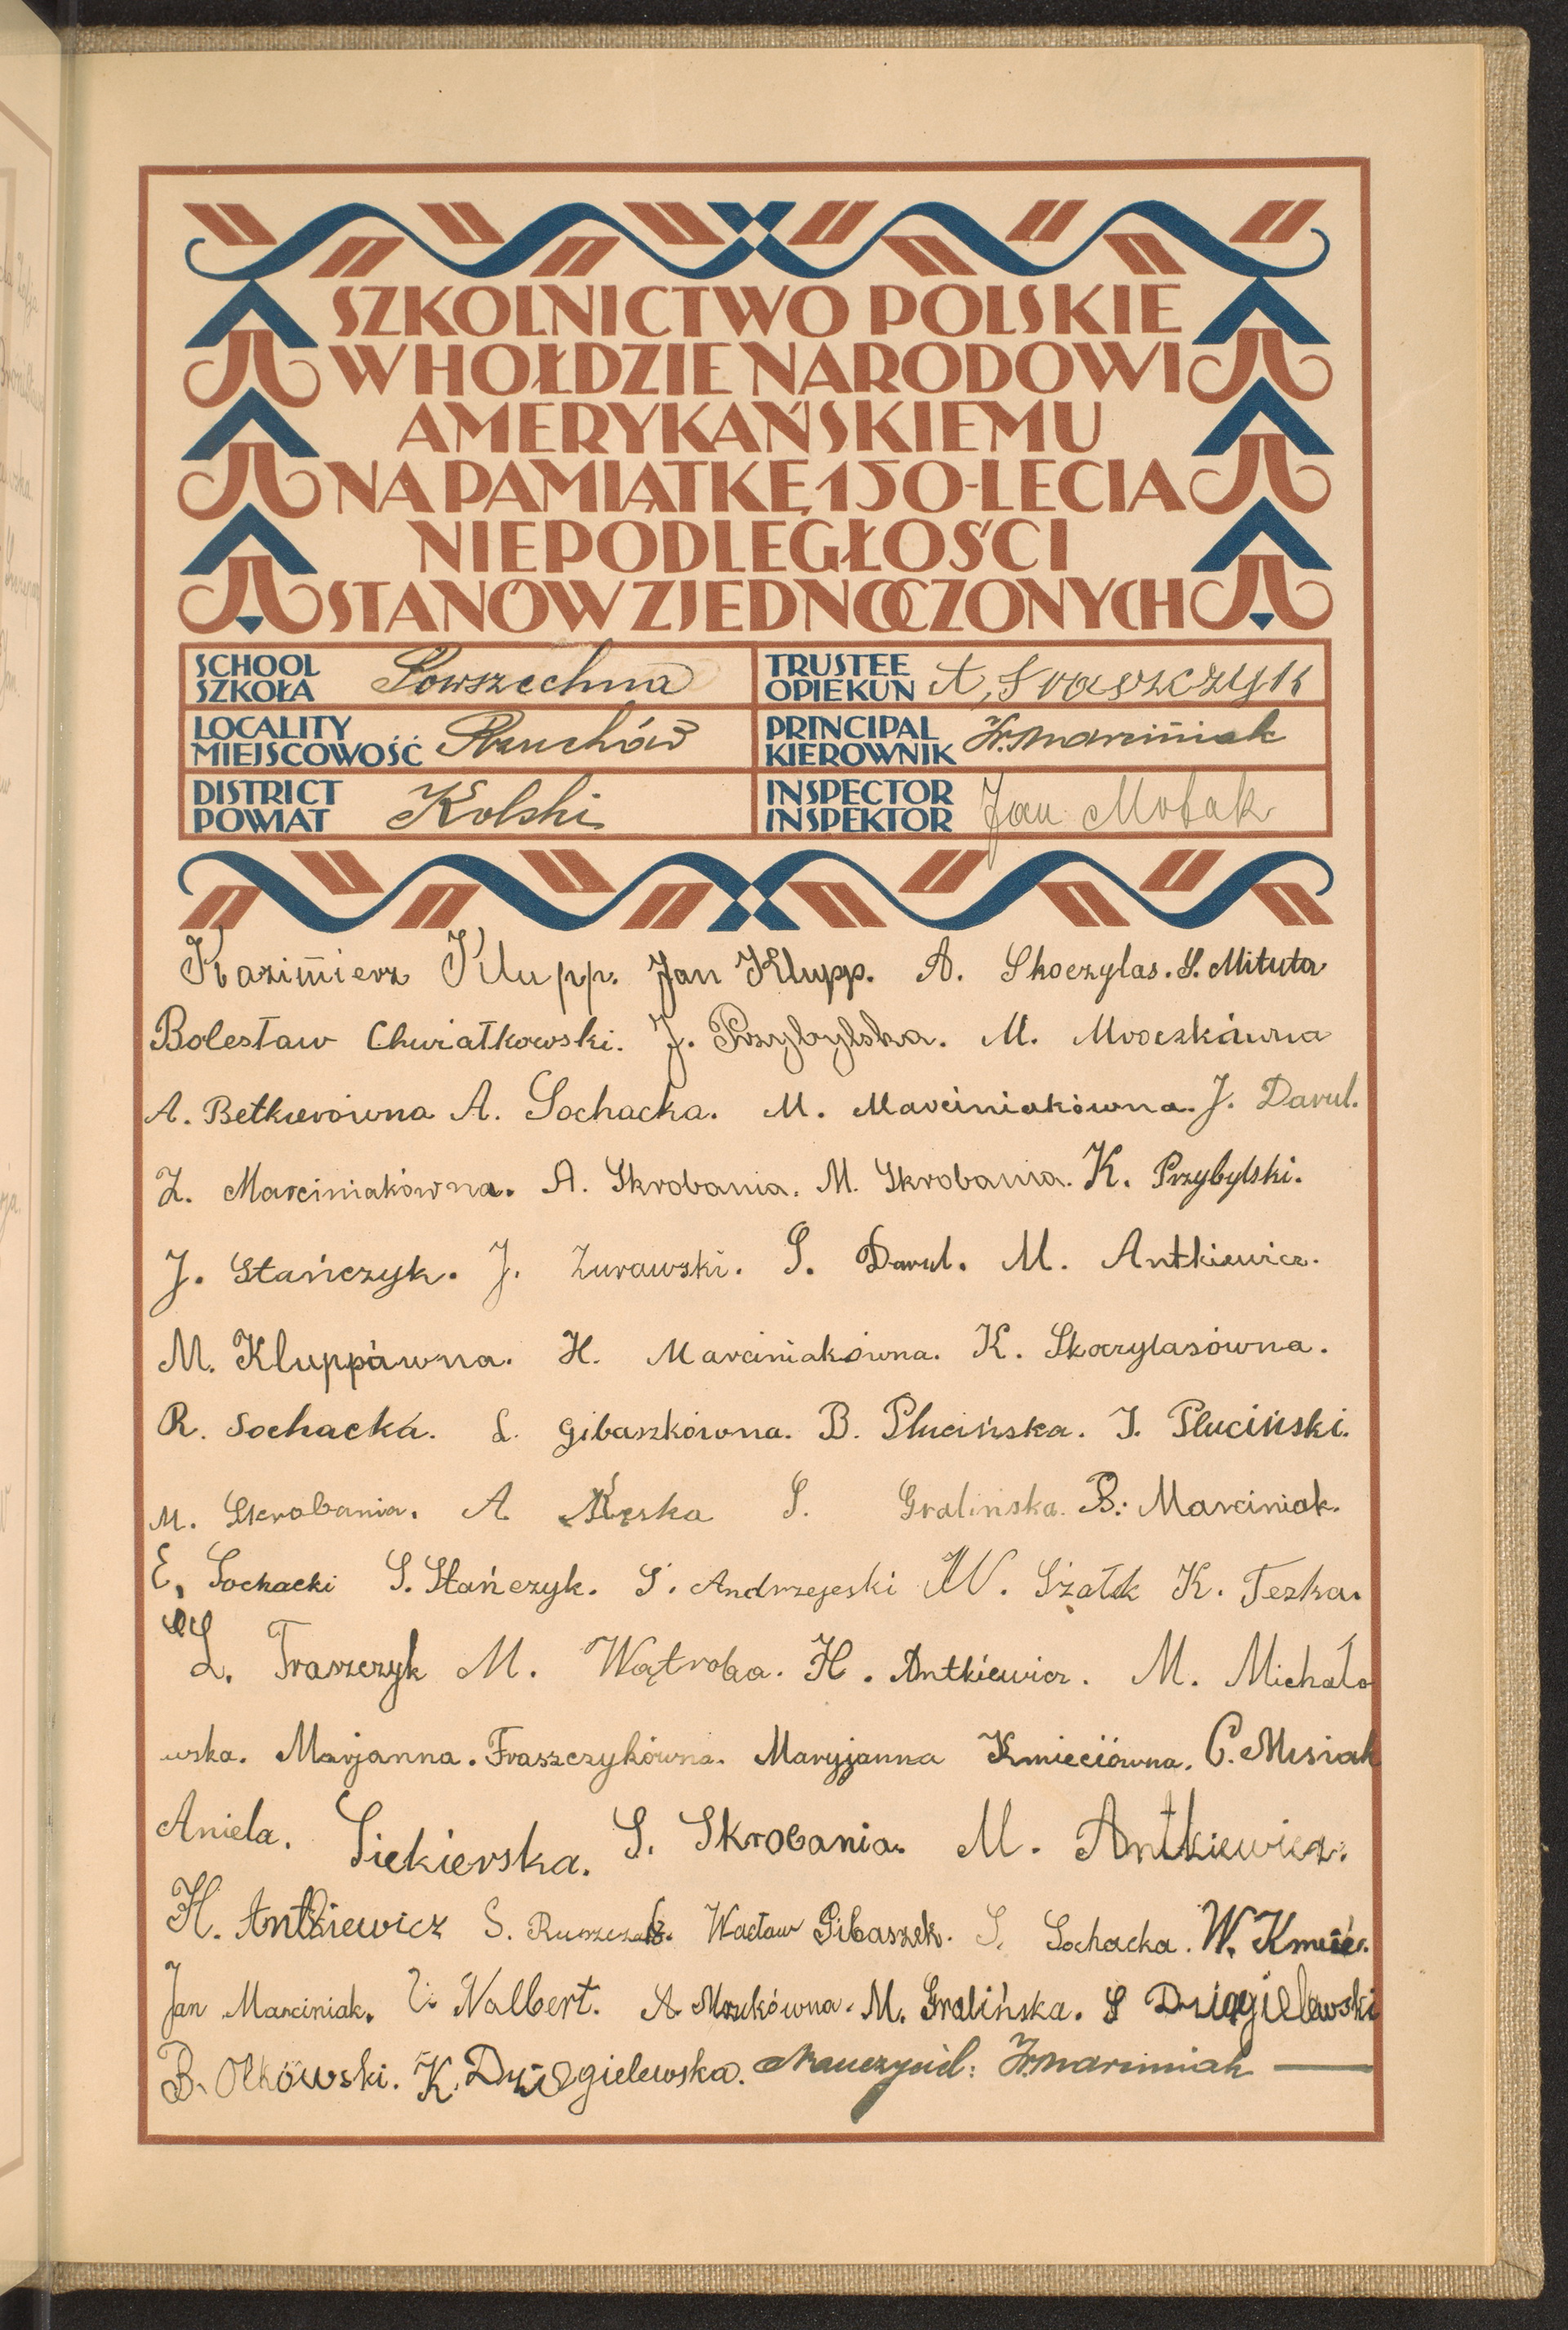 SZKOLNICTWO POLSKIE
W HOŁDZIE NARODOWI
AMERYKAŃSKIEMU
NA PAMIĄTKĘ 150-LECIA
NIEPODLEGŁOŚCI
STANÓW ZJEDNOCZONYCH
SCHOOL SZKOŁA Powszechna
TRUSTEE OPIEKUN A. Fraszczyk
LOCALITY MIEJSCOWOŚĆ Rzuchów
PRINCIPAL KIEROWNIK Fr. Marciniak
DISTRICT POWIAT Kolski
INSPECTOR INSPEKTOR Jan
Kazimierz Klupp. Jan Klupp. A. Skoczylas. S. Mituta
Bolesław Chwiałkowski. J. Przybylska. M. Mroczkówna
A. Betkierówna A. Sochacka. M. Marciniakówna. J. Darul.
Z. Marciniakówna. A. Skrobania. M. Skrobania. K. Przybylski.
J. Stańczyk. J. Żurawski. S. Darul. M. Antkiewicz.
M. Kluppówna. H. Marciniakówna. K. Skoczylasówna.
R. Sochacka. L. Gibaszkówna. B. Plucińska. J. Pluciński.
M. Skrobania. A Kęska S. Gralińska. B. Marciniak.
E. Sochacki S. Stańczyk. S. Andrzejeski W. K. Teska.
L. Fraszczyk M. Wątroba. H. Antkiewicz. M. Michało
wska. Marjanna. Fraszczykówna. Maryjanna Kmieciówna. C. Misiak
Aniela. Siekierska. S. Skrobania. M. Antkiewicz.
H. Antkiewicz S. Wacław Gibaszek. S. Sochacka. W. Kmieć.
Jan Marciniak. Walbert. A. M. Gralińska. S Dzięgielewski
B. Olkowski. K. Dzięgielewska. Nauczyciel: Fr. Marciniak